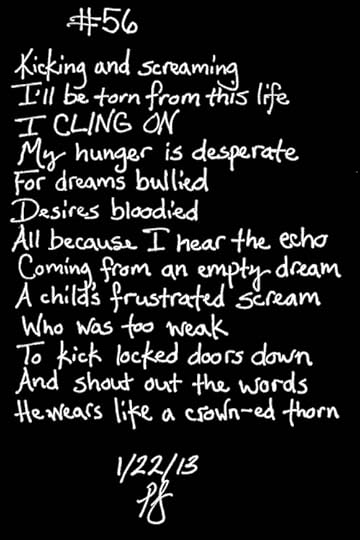 #56
Kicking and screaming
I'll be torn from this life
I CLING ON
My hunger is desperate
For dreams bullied
Desires bloodied
All because I hear the echo
Coming from an empty dream
A child's frustrated scream
Who was too weak
To kick locked doors down
And shout out the words
He wears like a crown-ed thorn
1/22/13